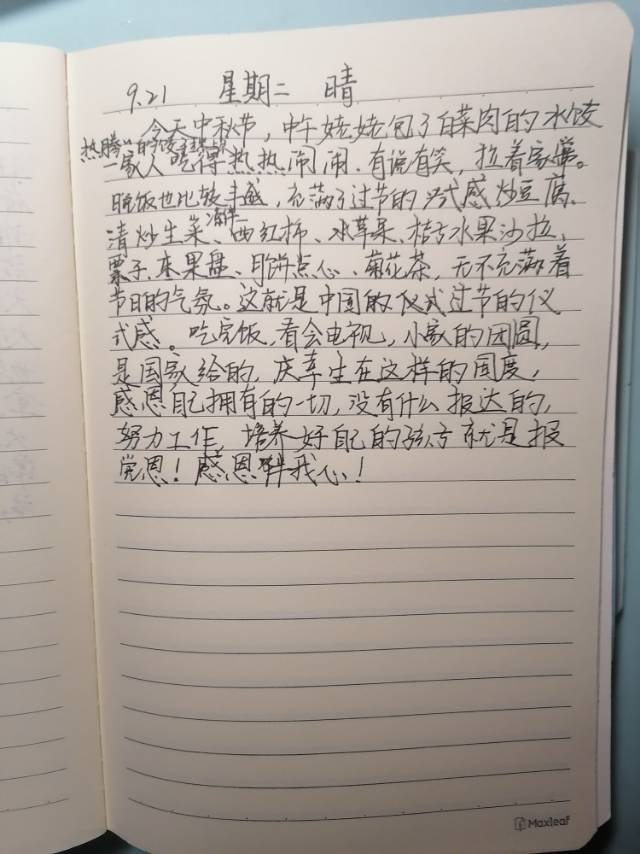 9.21 星期二 晴
今天中秋节，中午姥姥包了白菜肉的水饺
热腾腾的饺子
一家人吃得热热闹闹，有说有笑，拉着家常。
晚饭也比较丰盛，充满了过节的仪式感炒豆腐、
海鲜
清炒生菜、西红柿、水草果、桔子水果沙拉、
栗子、水果盘、月饼点心、菊花茶，无不充满着
节日的气氛。这就是中国的仪式过节的仪
式感。吃完饭，看会电视，小家的团圆，
是国家给的，庆幸生在这样的国度，
感恩自己拥有的一切，没有什么报达的，
努力工作，培养好自己的孩子就是报
党恩！感恩伴我心！
Maxleaf